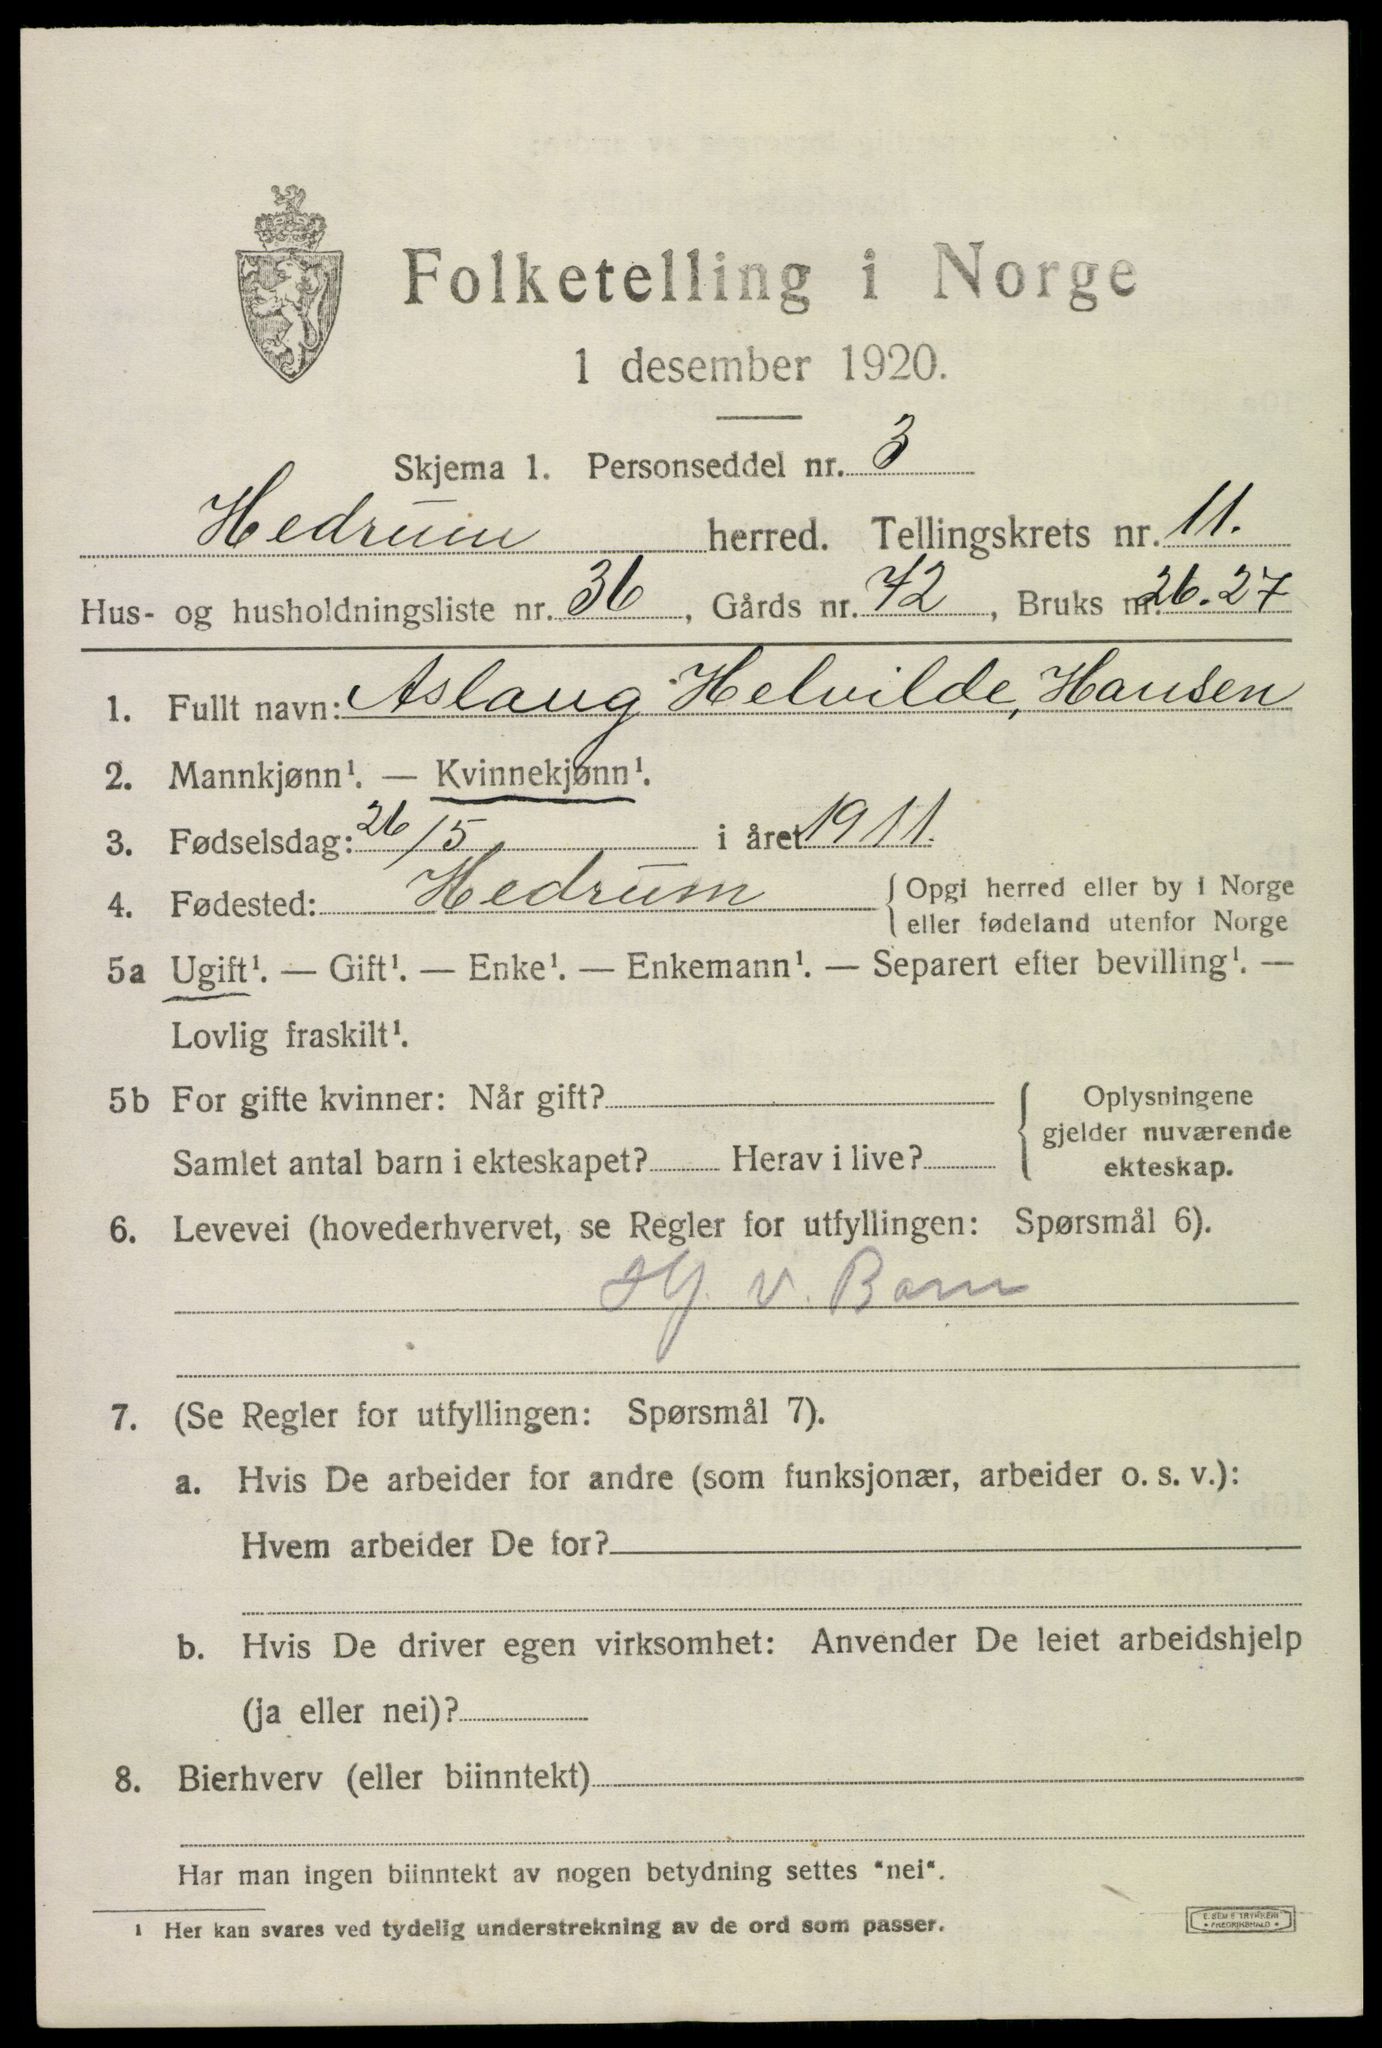 Folketelling i Norge
1 desember 1920.
Skjema 1. Personseddel nr. 3
Hedrum herred. Tellingskrets nr. 11.
Hus- og husholdningsliste nr. 36, Gårds nr. 42, Bruks nr. 26.27
1. Fullt navn: Aslaug Helvilde, Hansen
2. Mannkjønn¹. — Kvinnekjønn¹.
3. Fødselsdag: 26/5 i året 1911.
4. Fødested: Hedrum { Opgi herred eller by i Norge
eller fødeland utenfor Norge
5a Ugift¹. — Gift¹. — Enke¹. — Enkemann¹. — Separert efter bevilling¹. —
Lovlig fraskilt¹.
5b For gifte kvinner: Når gift?
Samlet antal barn i ekteskapet? Herav i live?
{ Oplysningene
gjelder nuværende
ekteskap.
6. Levevei (hovederhvervet, se Regler for utfyllingen: Spørsmål 6).
Hf. v. Barn
7. (Se Regler for utfyllingen: Spørsmål 7).
a. Hvis De arbeider for andre (som funksjonær, arbeider o. s. v.):
Hvem arbeider De for?
b. Hvis De driver egen virksomhet: Anvender De leiet arbeidshjelp
(ja eller nei)?
8. Bierhverv (eller biinntekt)
Har man ingen biinntekt av nogen betydning settes "nei".
1 Her kan svares ved tydelig understrekning av de ord som passer.
E. SEM'S TRYKKERI
FREDRIKSHALD